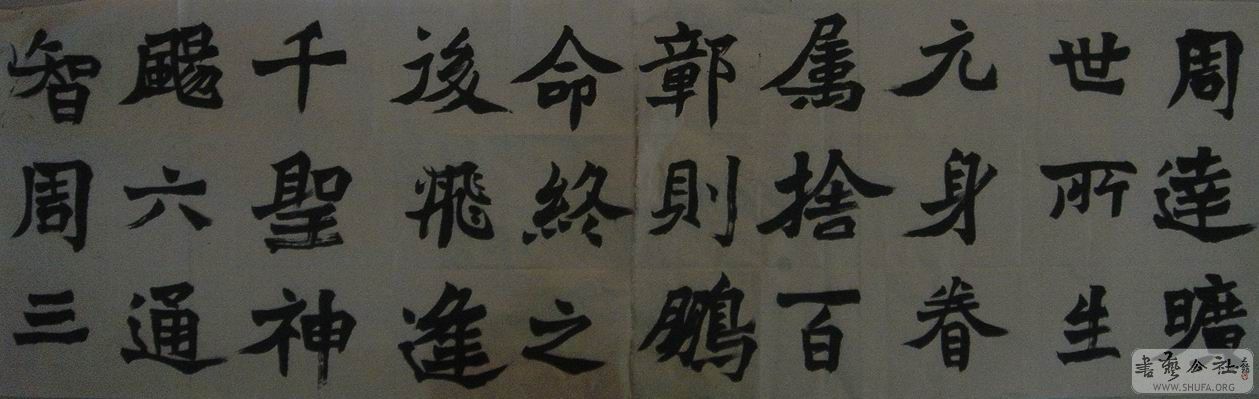 周達曠
世所生
元身眷
属捨百
鄣則鵬
命終之
後飛逢
千聖神
颺六通
智周三
書藝公社
WWW.SHUFA.ORG